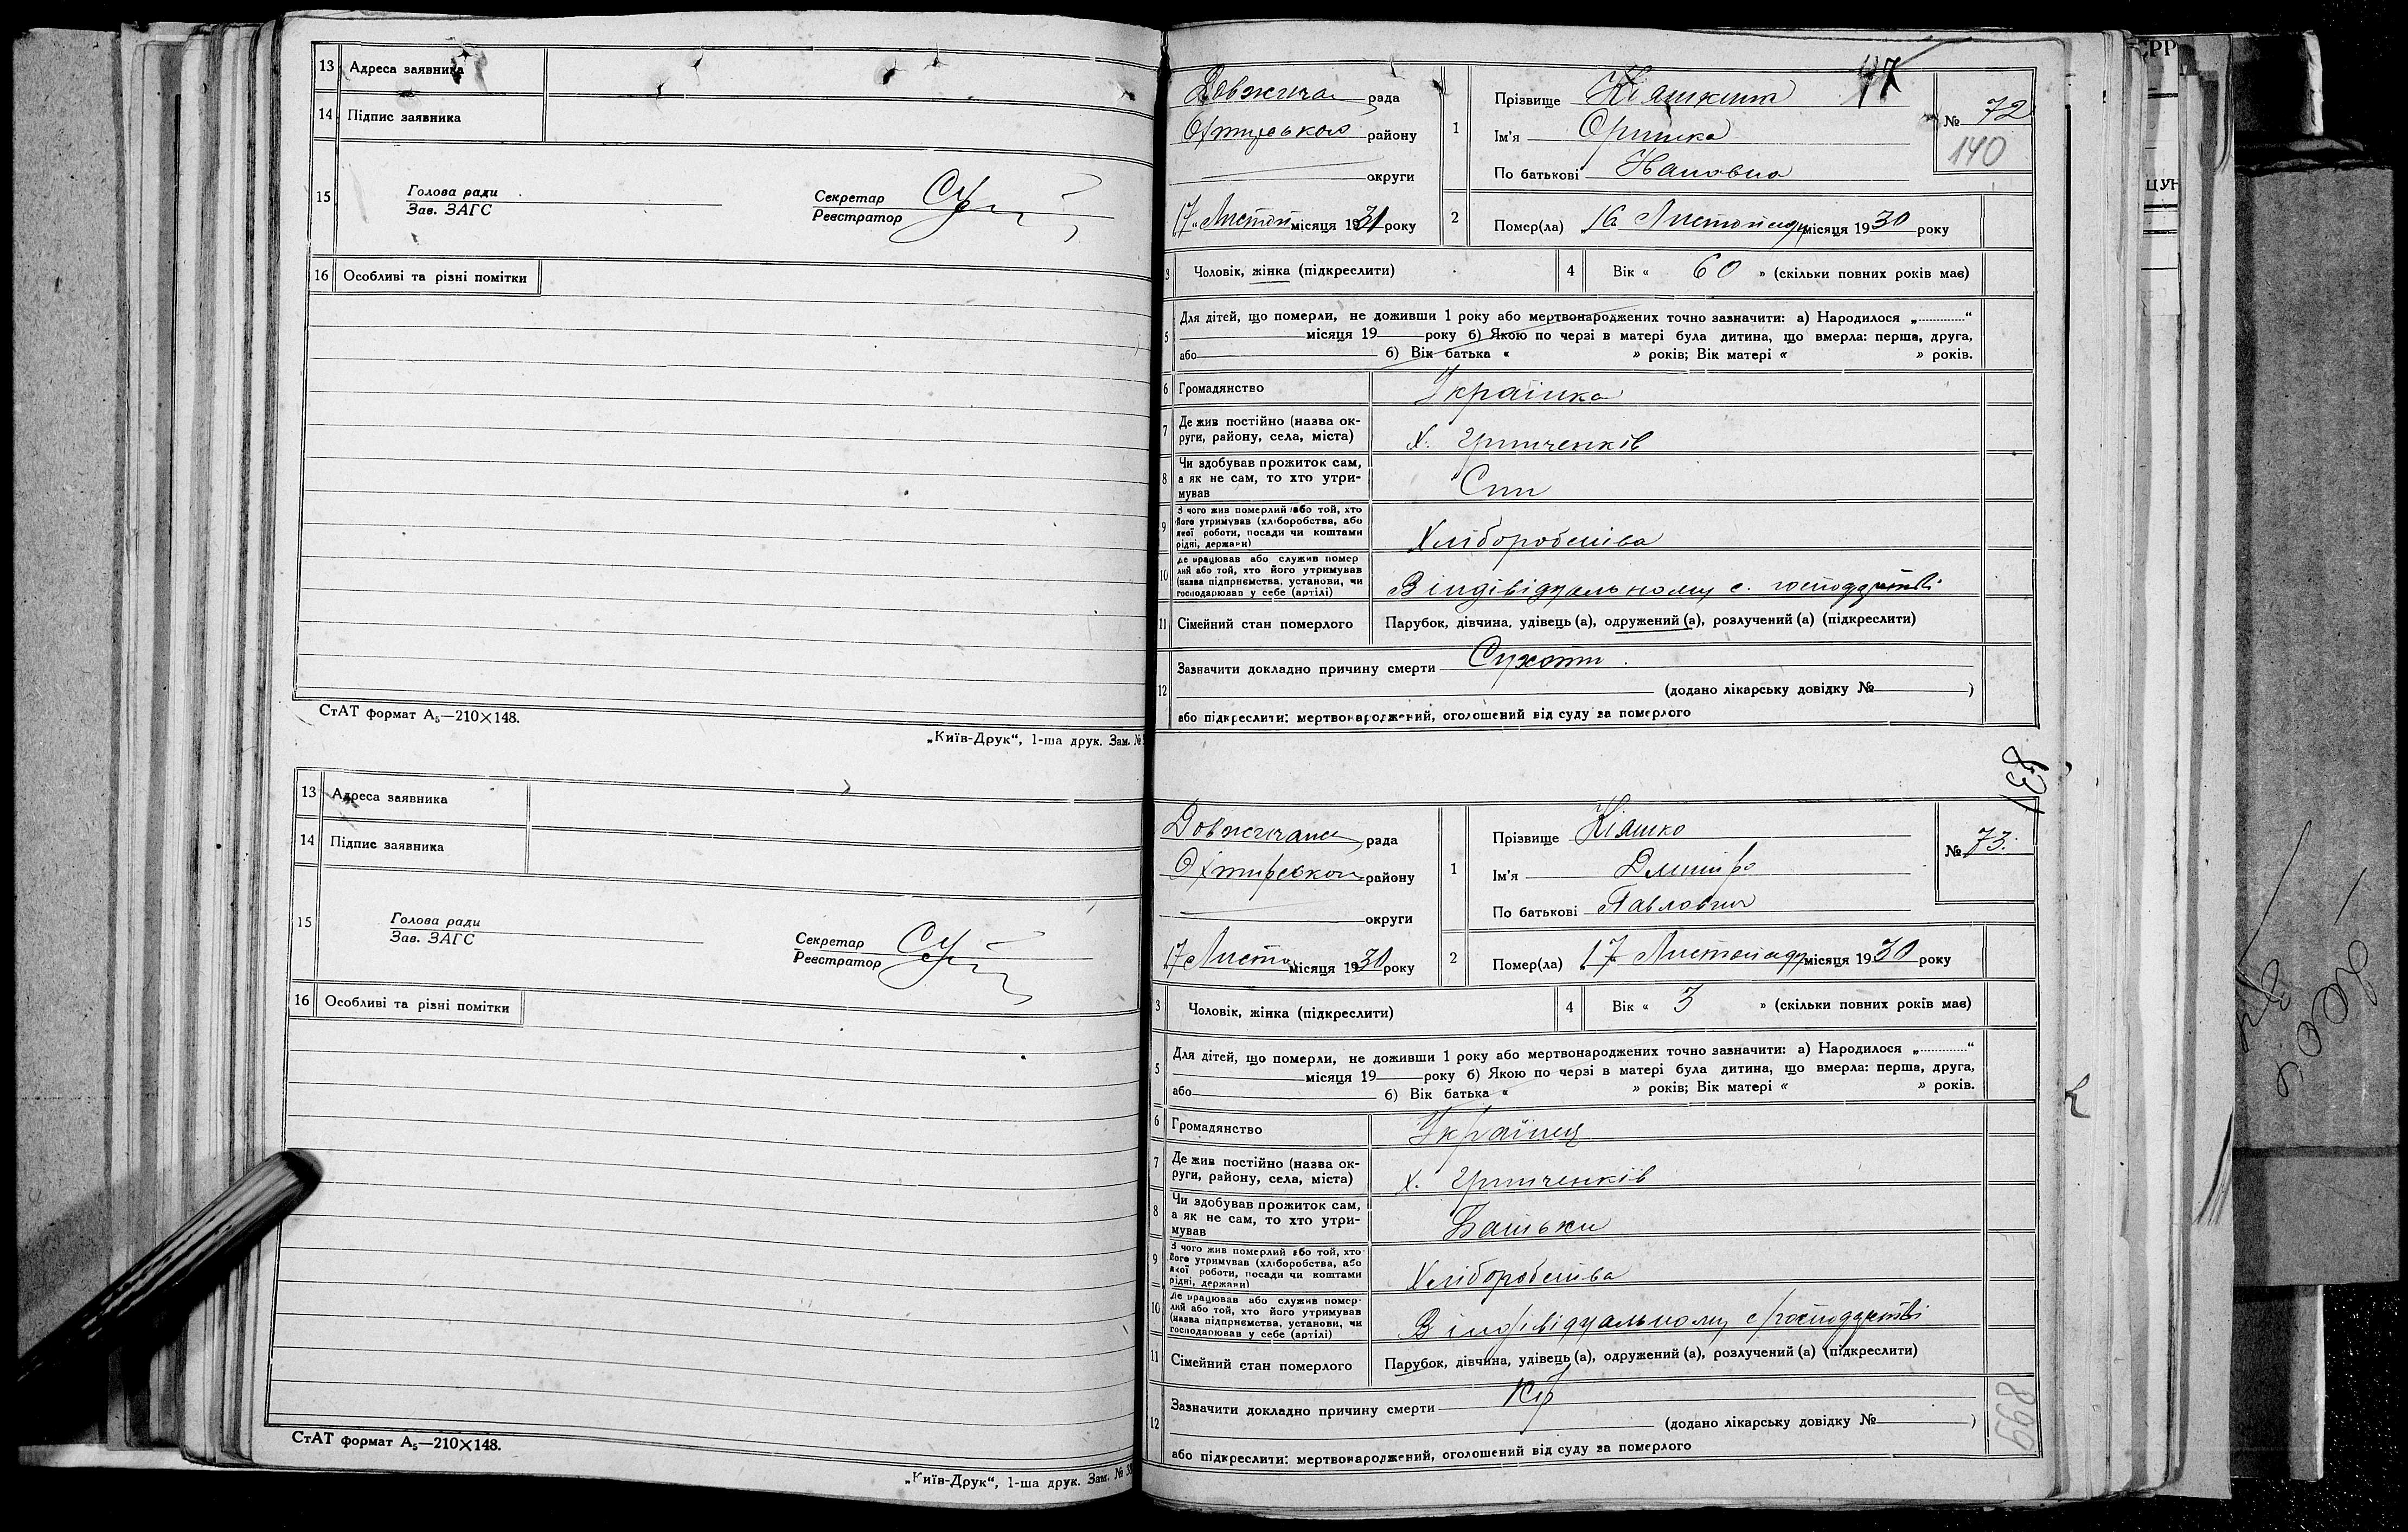 13 Адреса заявника
14 Підпис заявника
15 Голова ради
Зав. ЗАГС
Секретар
Реєстратор
16 Особливі та різні помітки
СтАТ формат А₅—210×148.
„Київ-Друк“, 1-ша друк. Зам. №
13 Адреса заявника
14 Підпис заявника
15 Голова ради
Зав. ЗАГС
Секретар
Реєстратор
16 Особливі та різні помітки
СтАТ формат А₅—210×148.
„Київ-Друк“, 1-ша друк. Зам. № 38
47
Довжича рада
Охтирського району
округи
„17“ Листоп місяця 1931 року
1 Прізвище
Ім'я Оришка
По батькові
№ 72
140
2 Помер(ла) „16 Листопаду місяця 1930 року
3 Чоловік, жінка (підкреслити)
4 Вік « 60 » (скільки повних років має)
5 Для дітей, що померли, не доживши 1 року або мертвонароджених точно зазначити: а) Народилося „............“
місяця 19 року б) Якою по черзі в матері була дитина, що вмерла: перша, друга,
або б) Вік батька « » років; Вік матері « » років.
6 Громадянство Українка
7 Де жив постійно (назва ок-
руги, району, села, міста) х. Гринченків
8 Чи здобував прожиток сам,
а як не сам, то хто утри-
мував Сам
9 З чого жив померлий або той, хто
його утримував (хліборобства, або
якої роботи, посади чи коштами
рідні, держави) Хліборобства
10 Де працював або служив помер
лий або той, хто його утримував
(назва підприємства, установи, чи
господарював у себе (артілі) В індівідуальному с. господарстві
11 Сімейний стан померлого Парубок, дівчина, удівець (а), одружений (а), розлучений (а) (підкреслити)
12 Зазначити докладно причину смерти Сухоти
(додано лікарську довідку № )
або підкреслити: мертвонароджений, оголошений від суду за померлого
138
Довжичан рада
Охтирського району
округи
„17 Листо місяця 1930 року
1 Прізвище Кіяшко
Ім'я Дмитро
По батькові Павлович
№ 73.
2 Помер(ла) „17 Листопаду місяця 1930 року
3 Чоловік, жінка (підкреслити)
4 Вік « 3 » (скільки повних років має)
5 Для дітей, що померли, не доживши 1 року або мертвонароджених точно зазначити: а) Народилося „............“
місяця 19 року б) Якою по черзі в матері була дитина, що вмерла: перша, друга,
або б) Вік батька « » років; Вік матері « » років.
6 Громадянство Українец
7 Де жив постійно (назва ок-
руги, району, села, міста) х. Гринченків
8 Чи здобував прожиток сам,
а як не сам, то хто утри-
мував Батьки
9 З чого жив померлий або той, хто
його утримував (хліборобства, або
якої роботи, посади чи коштами
рідні, держави) Хліборобства
10 Де працював або служив помер-
лий або той, хто його утримував
(назва підприємства, установи, чи
господарював у себе (артілі) В індівідуальному с/господарстві
11 Сімейний стан померлого Парубок, дівчина, удівець (а), одружений (а), розлучений (а) (підкреслити)
12 Зазначити докладно причину смерти Кір
(додано лікарську довідку № )
або підкреслити: мертвонароджений, оголошений від суду за померлого
899